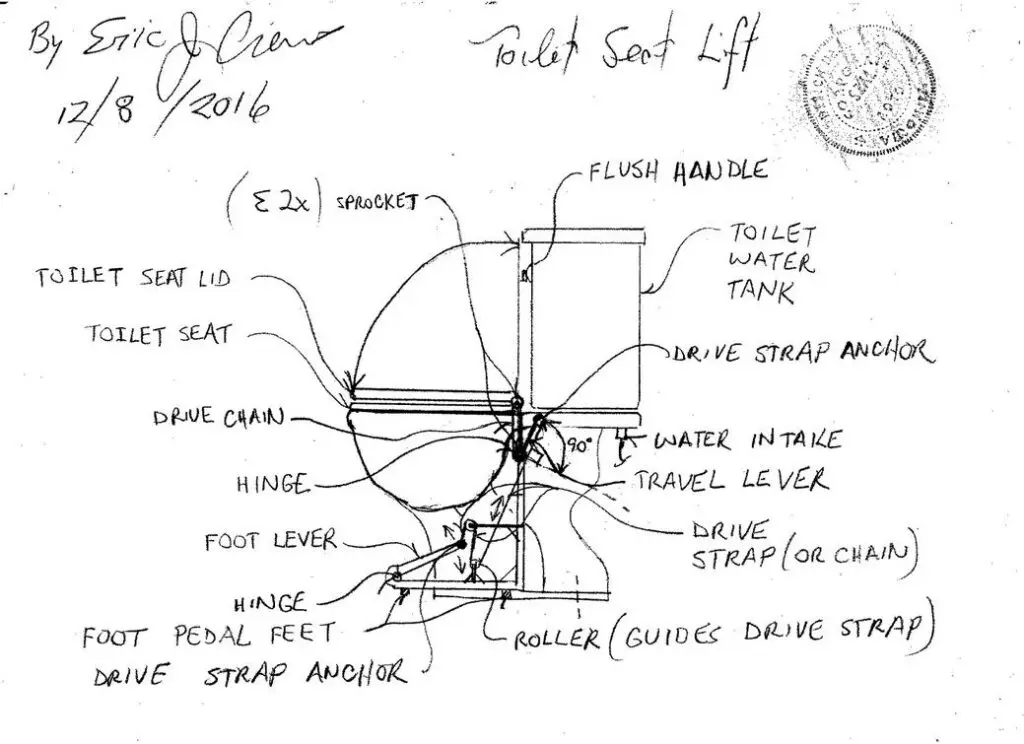 By Eric J
Toilet Seat Lift
12/8/2016
CORPORATE
SEAL
FLUSH HANDLE
(Σ 2x) SPROCKET
TOILET
WATER
TANK
TOILET SEAT LID
TOILET SEAT
DRIVE STRAP ANCHOR
DRIVE CHAIN
90°
WATER INTAKE
HINGE
TRAVEL LEVER
FOOT LEVER
DRIVE
STRAP (OR CHAIN)
HINGE
FOOT PEDAL FEET
ROLLER (GUIDES DRIVE STRAP)
DRIVE STRAP ANCHOR